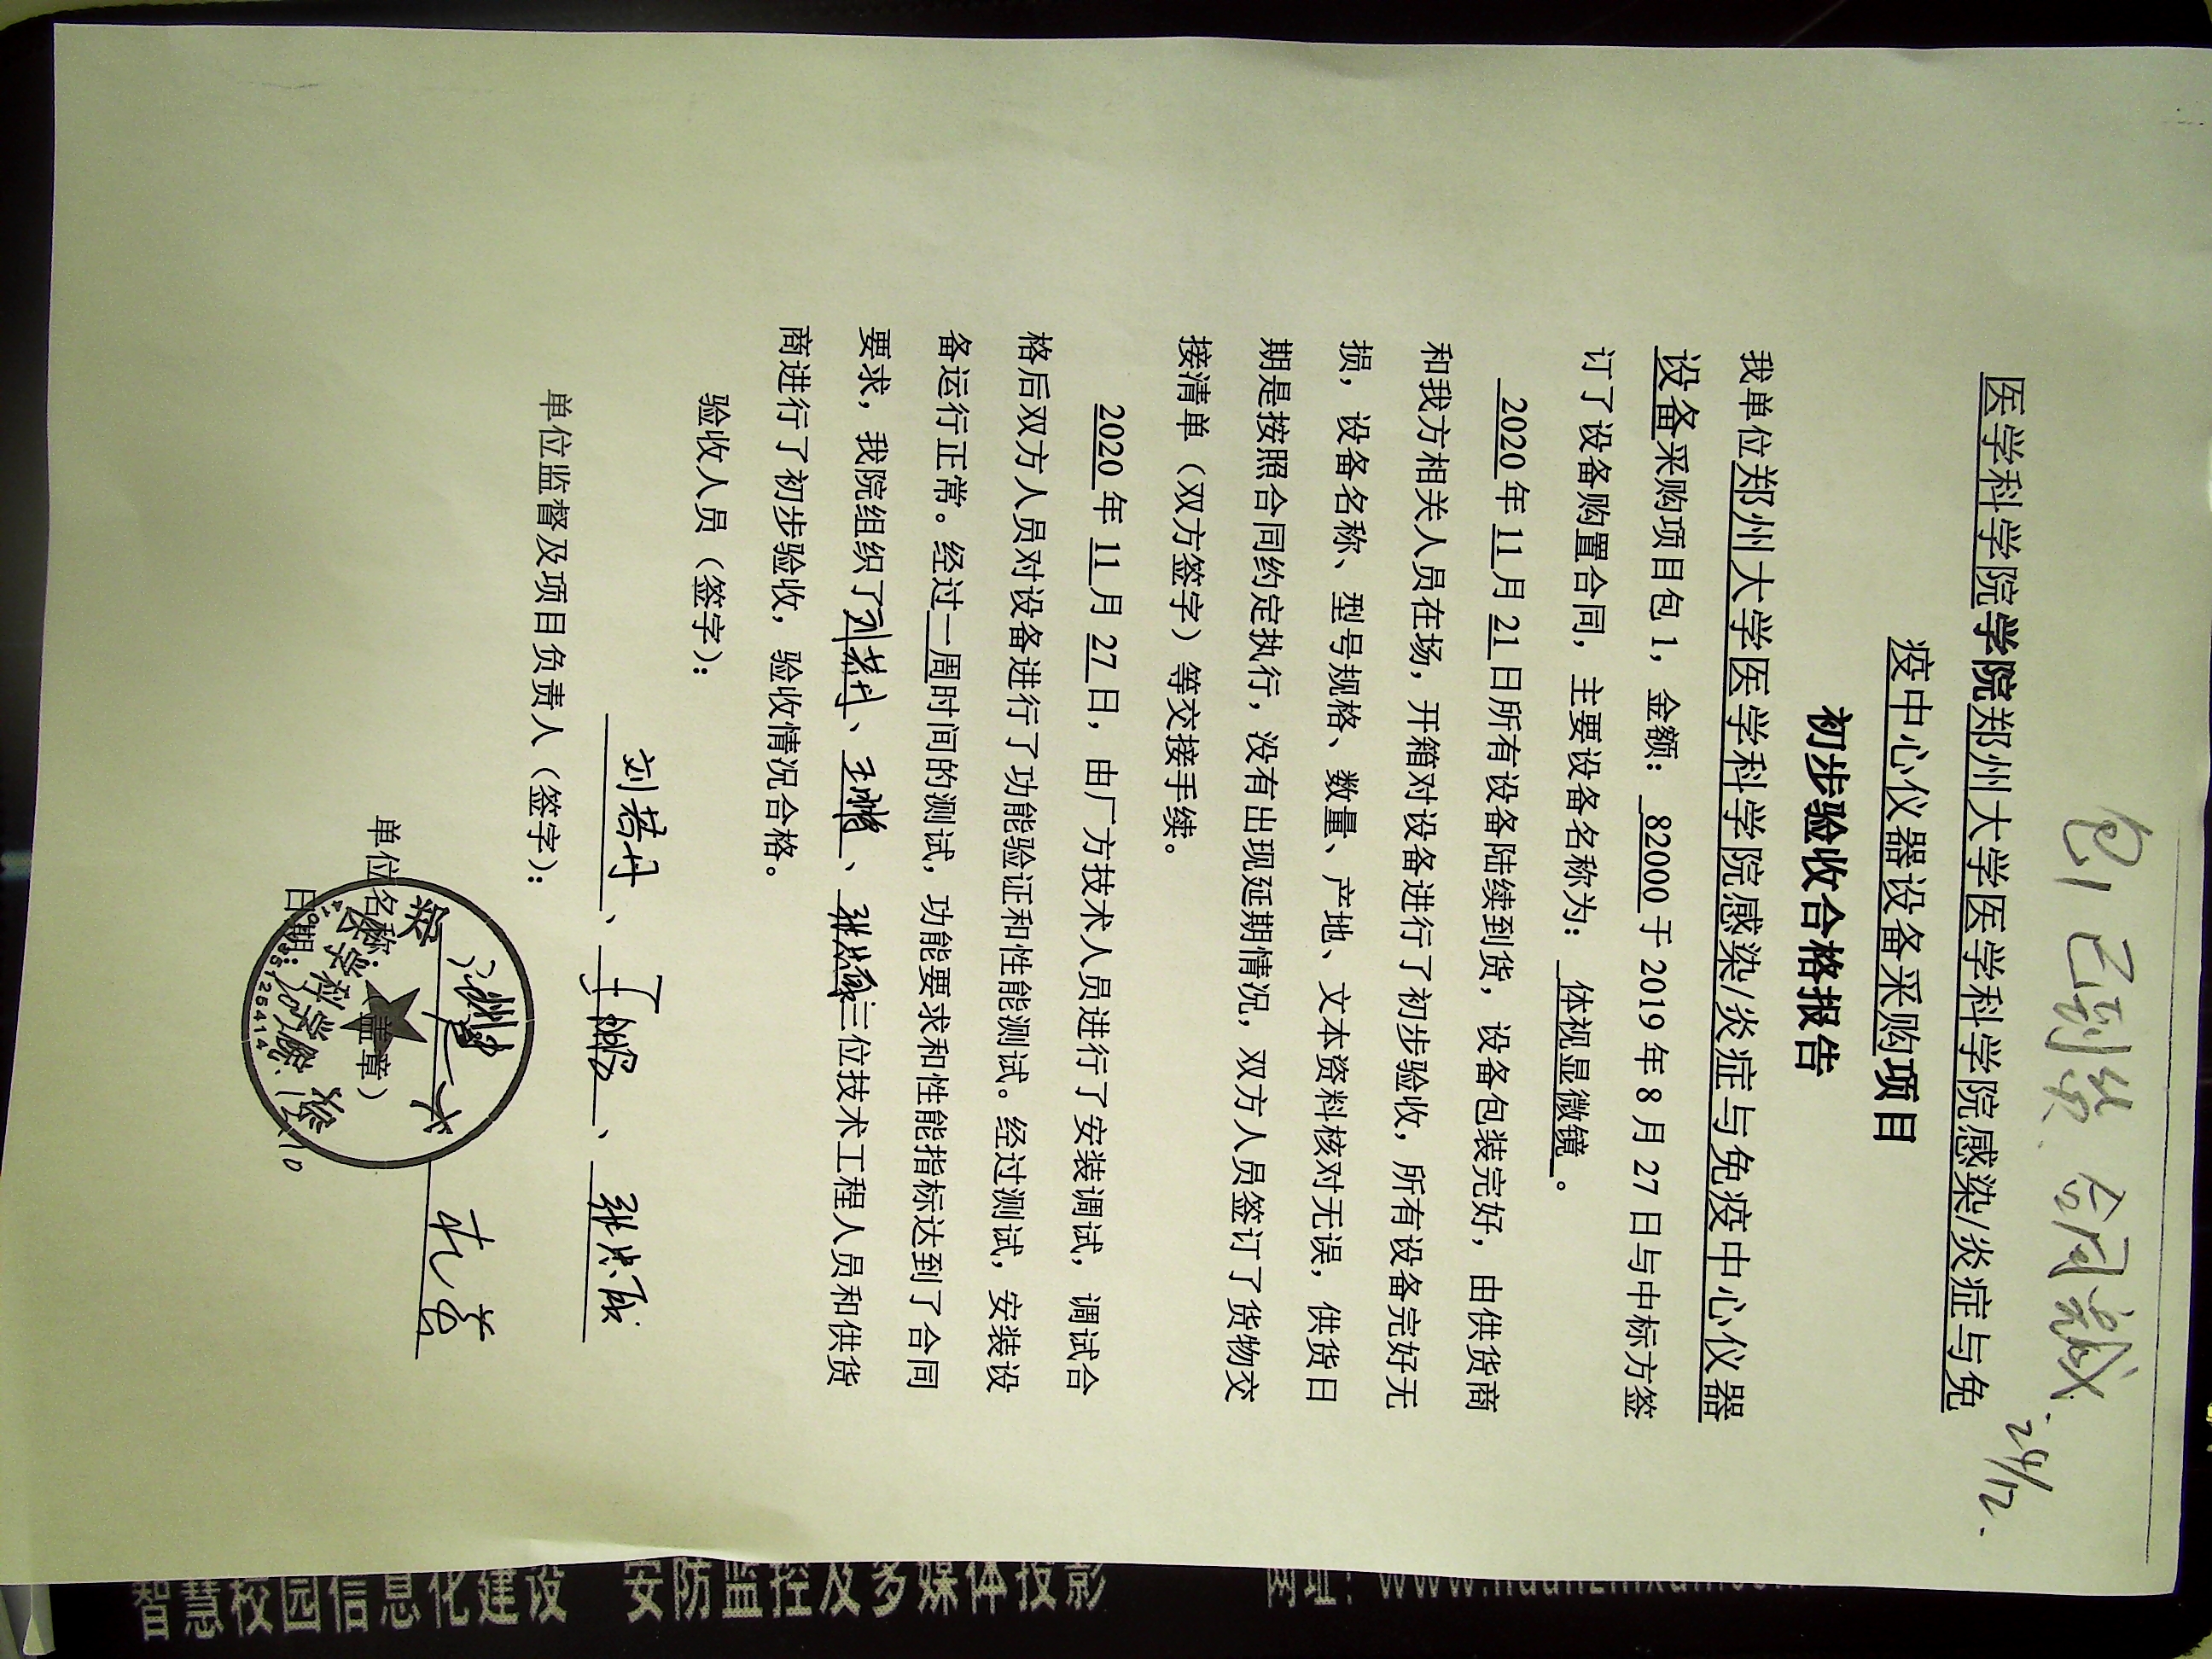 包1 已到货、合同诚
24/12.
医学科学院学院郑州大学医学科学院感染/炎症与免
疫中心仪器设备采购项目
初步验收合格报告
我单位郑州大学医学科学院感染/炎症与免疫中心仪器
设备采购项目包 1，金额： 82000 于 2019 年 8 月 27 日与中标方签
订了设备购置合同，主要设备名称为： 体视显微镜 。
2020 年 11 月 21 日所有设备陆续到货，设备包装完好，由供货商
和我方相关人员在场，开箱对设备进行了初步验收，所有设备完好无
损，设备名称、型号规格、数量、产地、文本资料核对无误，供货日
期是按照合同约定执行，没有出现延期情况，双方人员签订了货物交
接清单（双方签字）等交接手续。
2020 年 11 月 27 日，由厂方技术人员进行了安装调试，调试合
格后双方人员对设备进行了功能验证和性能测试。经过测试，安装设
备运行正常。经过 一周 时间的测试，功能要求和性能指标达到了合同
要求，我院组织了刘若丹、 、 三位技术工程人员和供货
商进行了初步验收，验收情况合格。
验收人员（签字）：
刘若丹、 、
单位监督及项目负责人（签字）：
单位名称：（盖章）
日期：
智慧校园信息化建设 安防监控及多媒体投影 网址：